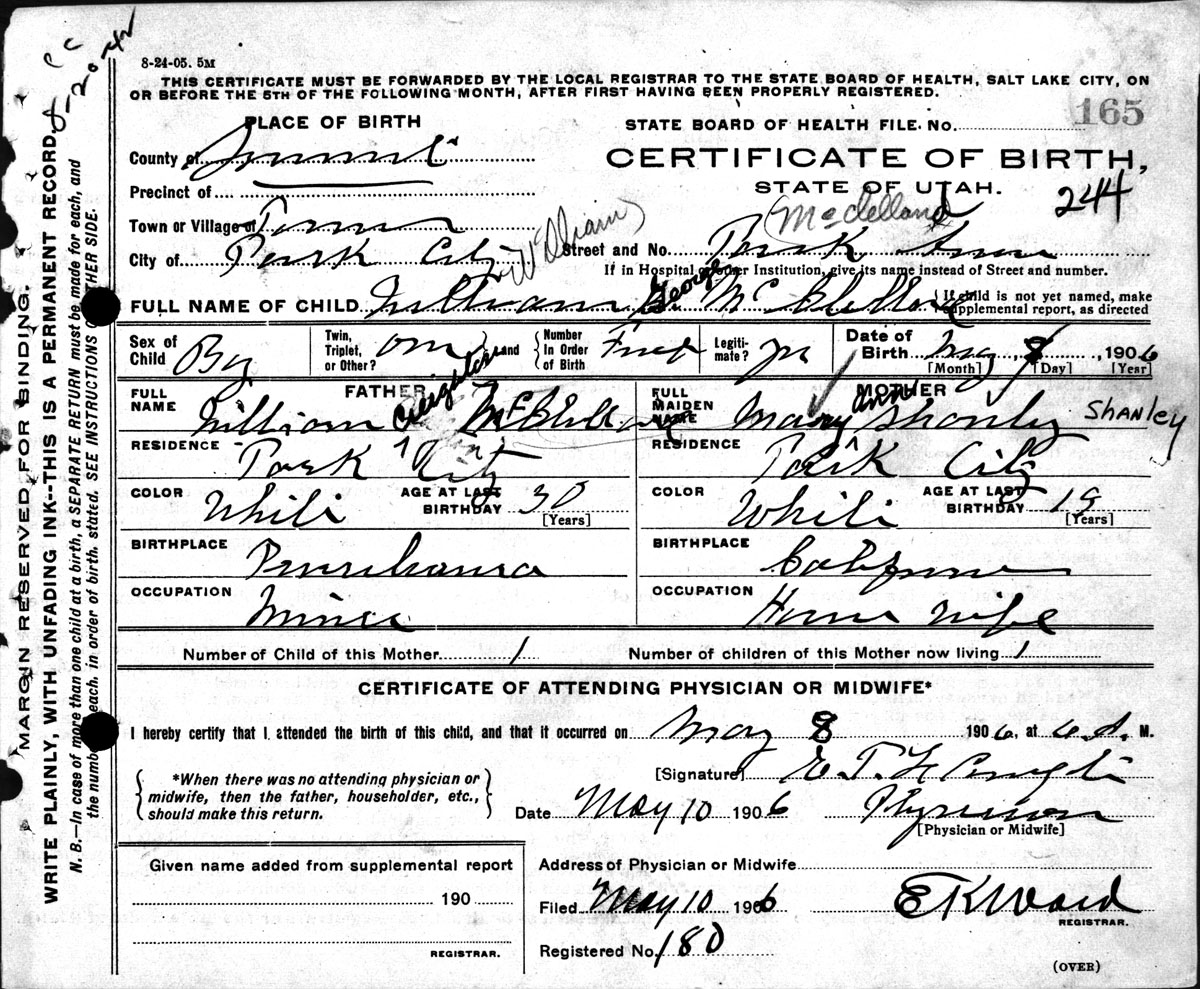 PC
8-20-42
8-24-05. 5M
THIS CERTIFICATE MUST BE FORWARDED BY THE LOCAL REGISTRAR TO THE STATE BOARD OF HEALTH, SALT LAKE CITY, ON
OR BEFORE THE 5TH OF THE FOLLOWING MONTH, AFTER FIRST HAVING BEEN PROPERLY REGISTERED.
PLACE OF BIRTH
STATE BOARD OF HEALTH FILE. No. 165
County of Summit
CERTIFICATE OF BIRTH,
Precinct of
STATE OF UTAH.
244
McClelland
Town or Village of
William
City of Park City
Street and No. Park
If in Hospital or other Institution, give its name instead of Street and number.
George
FULL NAME OF CHILD William G. McClelland
{If child is not yet named, make
supplemental report, as directed
Sex of Child Boy
Twin, Triplet, or Other? one and Number In Order of Birth First
Legitimate? yes
Date of Birth May 8, 1906
[Month] [Day] [Year]
FATHER
MOTHER
FULL NAME William Creighton McClelland
FULL MAIDEN NAME Mary Ann Shanley SHANLEY
RESIDENCE Park City
RESIDENCE Park City
COLOR White AGE AT LAST BIRTHDAY 30 [Years]
COLOR White AGE AT LAST BIRTHDAY 19 [Years]
BIRTHPLACE Pennsylvania
BIRTHPLACE California
OCCUPATION Miner
OCCUPATION House Wife
Number of Child of this Mother 1
Number of children of this Mother now living 1
CERTIFICATE OF ATTENDING PHYSICIAN OR MIDWIFE*
I hereby certify that I attended the birth of this child, and that it occurred on May 8 1906, at 6 A. M.
{*When there was no attending physician or
midwife, then the father, householder, etc.,
should make this return.}
[Signature] E. T.
Date May 10 1906 Physician
[Physician or Midwife]
Given name added from supplemental report
Address of Physician or Midwife
190
Filed May 10 1906 E K Ward
REGISTRAR.
REGISTRAR.
Registered No. 180
(OVER)
MARGIN RESERVED FOR BINDING.
WRITE PLAINLY, WITH UNFADING INK--THIS IS A PERMANENT RECORD.
N. B.—In case of more than one child at a birth, a SEPARATE RETURN must be made for each, and
the number each, in order of birth, stated. SEE INSTRUCTIONS OTHER SIDE.